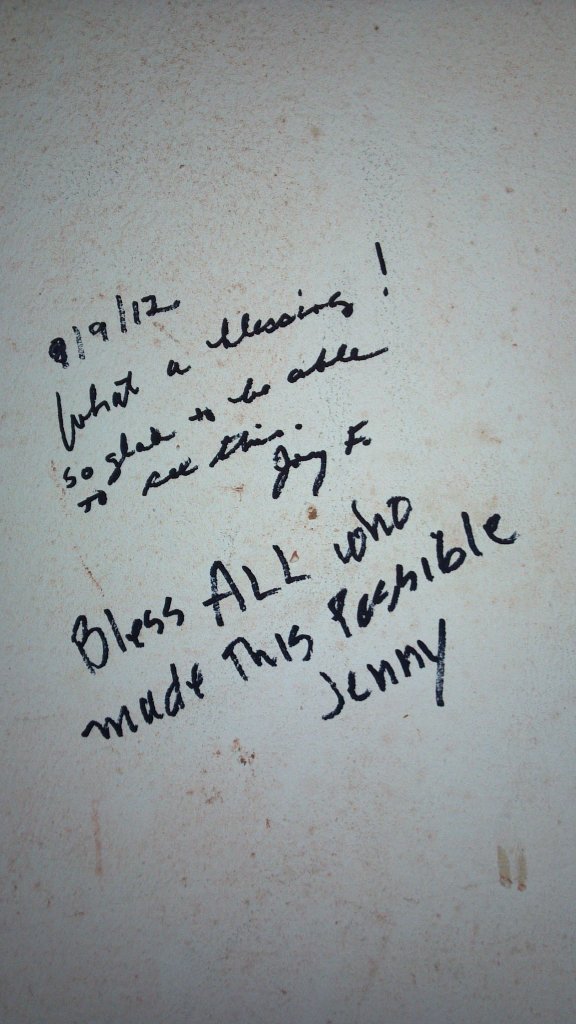 9/9/12
What a blessing!
so glad to be able
to see this.
Joy F.
Bless ALL who
made This Possible
Jenny